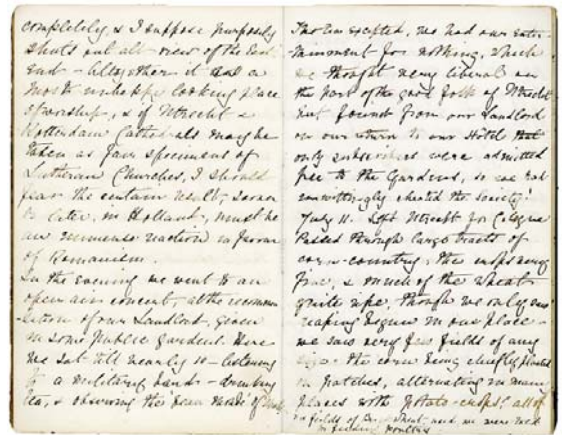 completely, & I suppose purposely
shuts out all view of the East
End – altogether it was a
most unhappy looking place
of worship, & if Utrecht &
Rotterdam Cathedrals may be
taken as fair specimens of
Lutheran Churches, I should
fear the certain result, sooner
or later, in Holland, must be
an immense reaction in favour
of Romanism.
In the evening we went to an
open air concert, at the recommen-
dation of our Landlord, given
in some Public Gardens. Here
we sat till nearly 10 – listening
to a military band – drinking
tea, & observing the beau monde of
excepted, we had our enter-
-tainment for nothing, which
we thought very liberal on
the part of the good folk of Utrecht
but found from our Landlord
on our return to our Hotel that
only subscribers were admitted
free to the Gardens, so we had
unwittingly cheated the Society!
July 11. Left Utrecht for Cologne
Passed through large tracts of
corn-country, the crops very
fine, & much of the wheat
quite ripe, though we only saw
reaping begun in one place –
we saw very few fields of any
size – the corn being chiefly planted
in patches, alternating in many
places with potato-crops! all of
fields of wheat used we were told
in feeding poultry